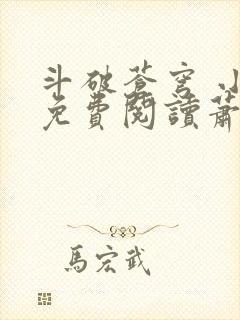 斗破蒼穹 小
免費閱讀蕭
馬宏武